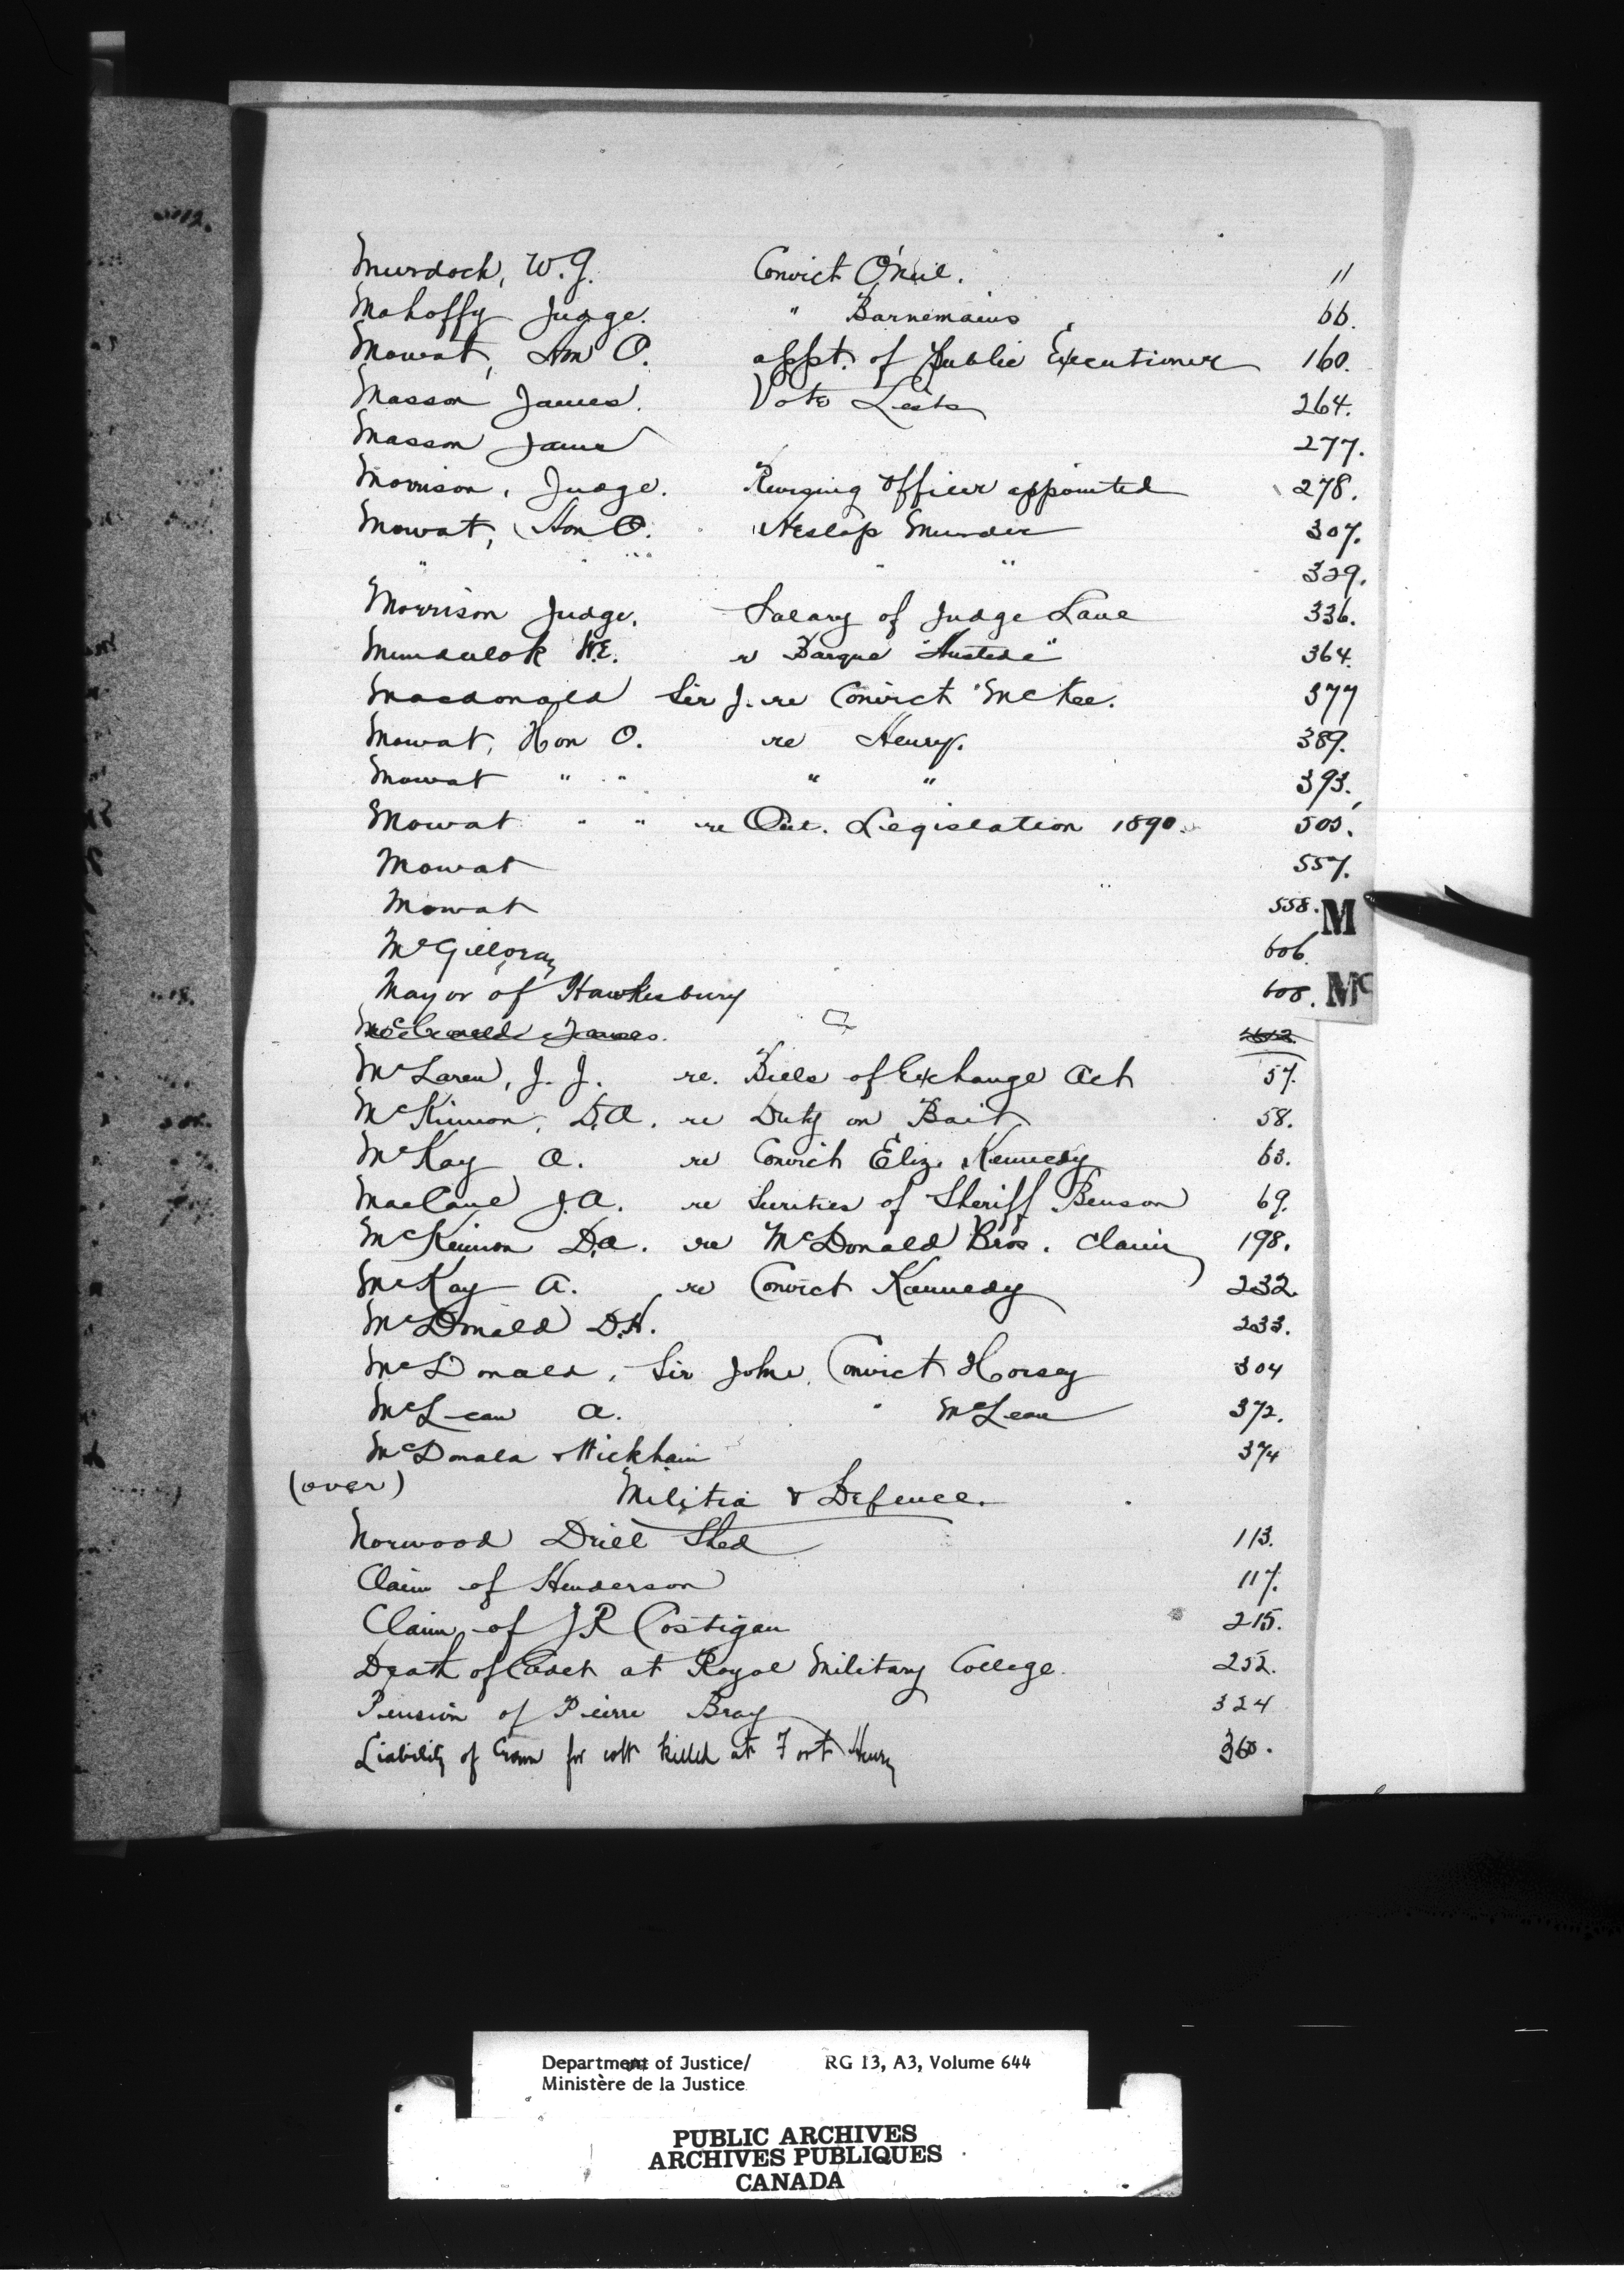 Murdoch, W. G. Convict O'Neil. 11
Mahoffy Judge. " Barnemains 66.
Mowat, Hon O. appt. of Public Executioner 160.
Masson James. Vote Lists 264.
Masson James 277.
Morrison, Judge. Revising Officer appointed 278.
Mowat, Hon O. Heslop Murder 307.
" " " " " 329.
Morrison Judge. Salary of Judge Lane 336.
W.E. re Barque "Austeda" 364.
Macdonald Sir J. re Convict McKee. 377
Mowat, Hon O. re Henry. 389.
Mowat " " " " 393.
Mowat " " re Ont. Legislation 1890. 505.
Mowat 557.
Mowat 558.
M
McGilloray 606.
Mayor of Hawkesbury 608.
Mc
James.
McLaren, J. J. re. Bills of Exchange Act 57.
McKinnon, D.A. re Duty on Bait 58.
McKay A. re Convict Eliz. Kennedy 63.
MacLane J.A. re Sureties of Sheriff Benson 69.
McKinnon D.A. re McDonald Bros. Claim 198.
McKay A. re Convict Kennedy 232.
McDonald D.H. 233.
McDonald, Sir John, Convict Horsey 304
McLean A. " McLean 372.
McDonald & Wickham 374
(over)
Militia & Defence.
Norwood Drill Shed 113.
Claim of Henderson 117.
Claim of J R Costigan 215.
Death of Cadet at Royal Military College. 252.
Pension of Pierre Bray 324
Liability of Crown for colt killed at Fort Henry 360.
Department of Justice/ RG 13, A3, Volume 644
Ministère de la Justice
PUBLIC ARCHIVES
ARCHIVES PUBLIQUES
CANADA